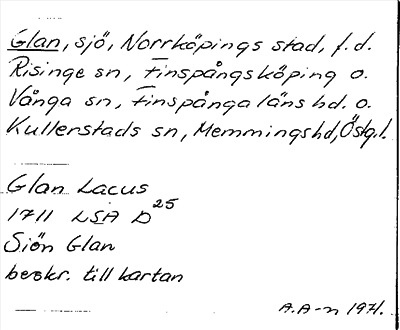 Glan, sjö, Norrköpings stad, f.d.
Risinge sn, Finspångs köping o.
Vånga sn, Finspånga läns hd. o.
Kullerstads sn, Memmings hd, Östg.l.
Glan Lacus
1711 LSA D25
Siön Glan
beskr. till kartan
A.A-n 1971.